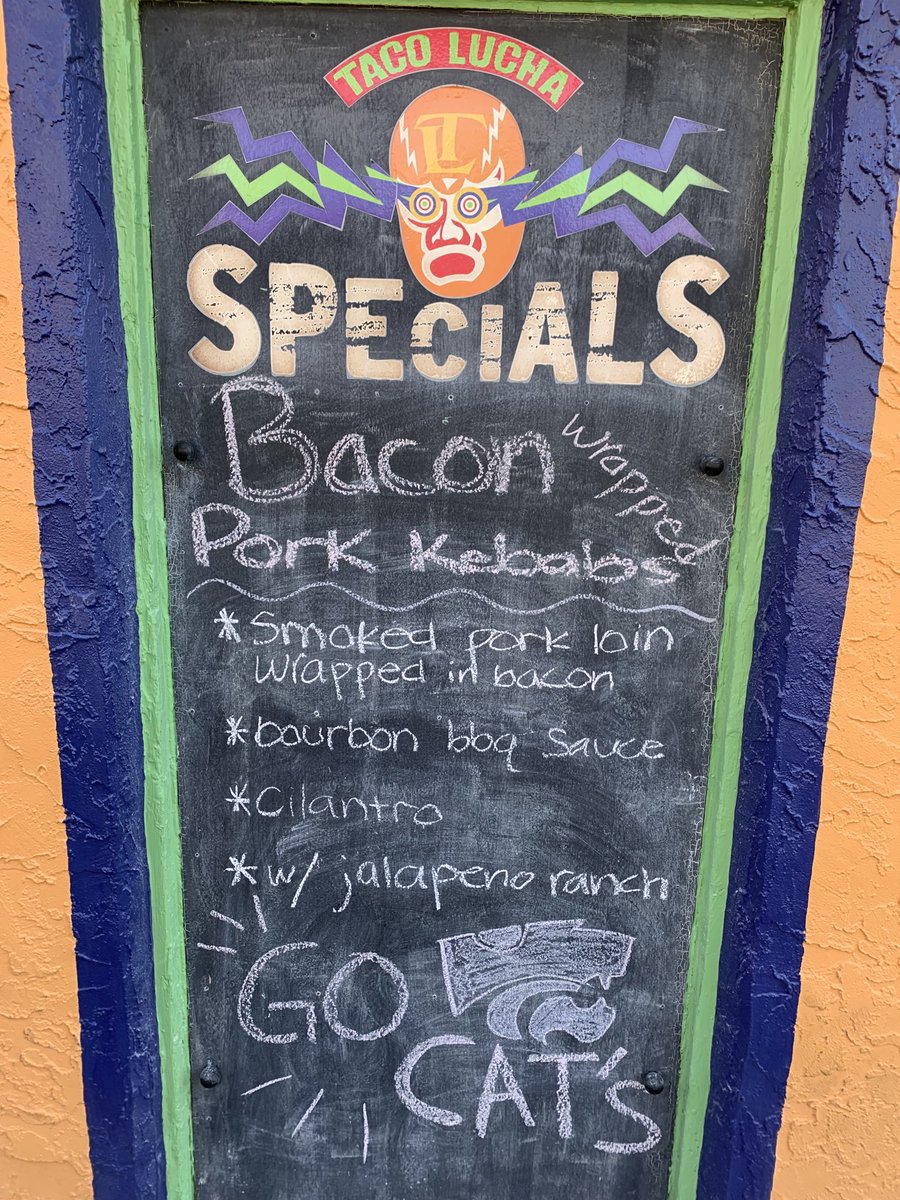 TACO LUCHA
TL
SPECIALS
Bacon wrapped
Pork Kebabs
* Smoked pork loin
wrapped in bacon
* bourbon bbq Sauce
* Cilantro
* w/ jalapeno ranch
GO
CAT'S